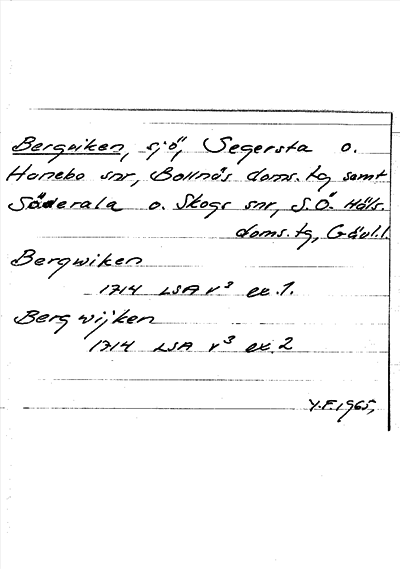 Bergviken, sjö, Segersta o.
Hanebo snr, Bollnäs doms. tg samt
Söderala o. Skogs snr, S.Ö. Häls.
doms. tg, Gävl. l.
Bergwiken
1714 LSA v³ ex. 1.
Bergwijken
1714 LSA v³ ex. 2
Y.F. 1965,